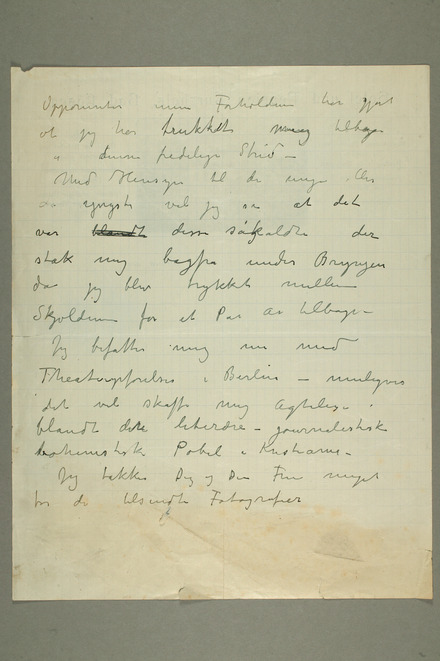 mine Forholdene har gjort
at jeg har trukket meg tilbage
i denne Strid –
Med Hensyn til de unge eller
de yngste vil jeg si at det
var disse såkaldte der
stak mig bagfra under Brynjen
da jeg blev trykket mellem
Skjoldene for et Par År tilbage –
Jeg befatter mig nu med
Theateropførelser i Berlin – muligvis
det vil skaffe mig Agtelse
blandt dette literære – journalistisk
bohemistisk Pøbel i Kristiania –
Jeg takker Dig og Din Frue meget
for de tilsendte Fotografier